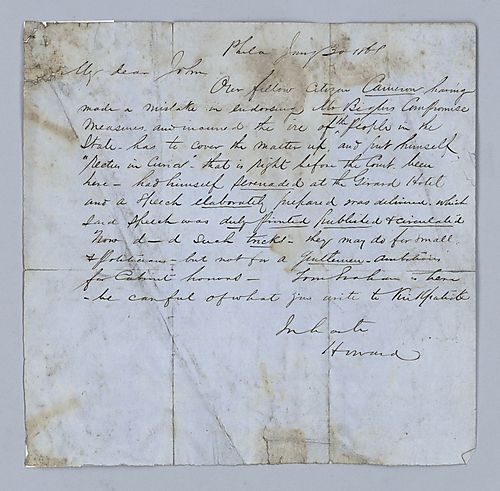 Phila Jany 30 1861
My dear John
Our fellow citizen Cameron having
made a mistake in endorsing Mr Biglers Compromise
Measures, and incurred the ire of the People in the
State - has to cover the matter up, and put himself
"rectus in Curia" - that is right before the Court, been
here - had himself serenaded at the Girard Hotel
and a speech elaborately prepared was delivered, which
said speech was duly printed published & circulated
Now d—d such tricks - they may do for small
Politicians - but not for a Gentleman - ambitious
for Cabinet honors - Tom Graham is here
- be careful of what you write to Kirkpatrick
In haste
Howard